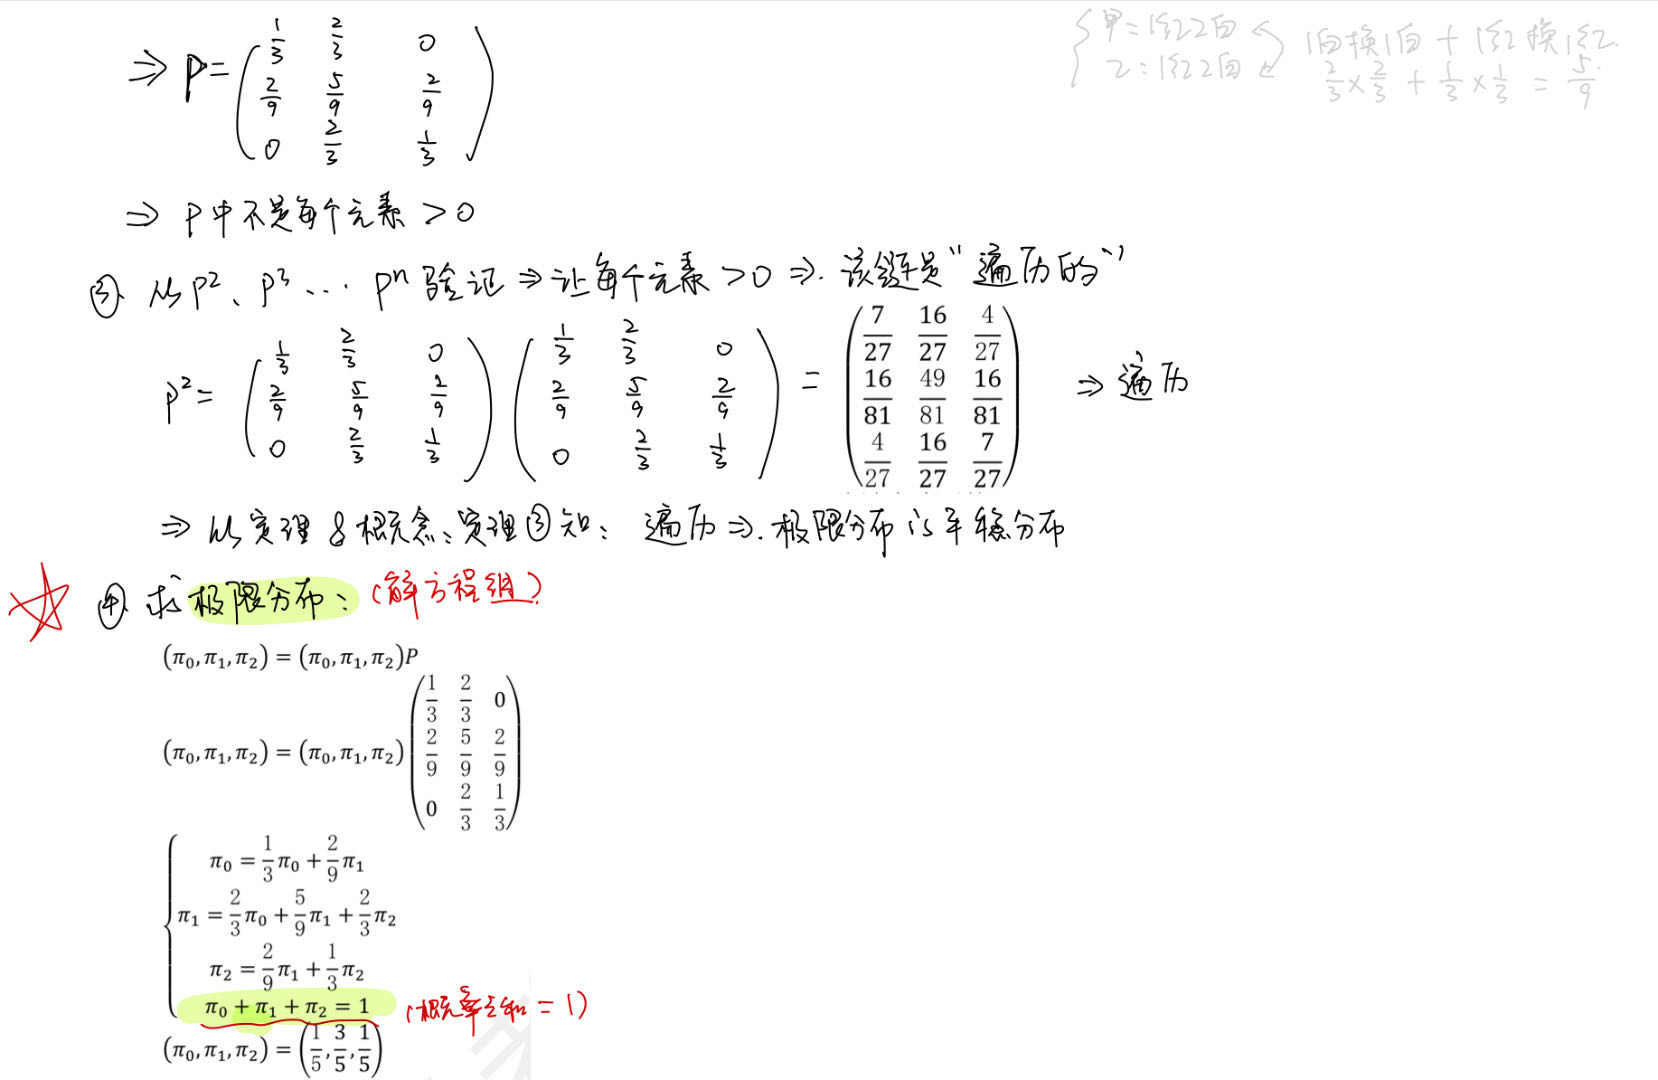 {甲:1红2白
乙:1红2白
1白换1白 + 1红换1红.
2/3 × 2/3 + 1/3 × 1/3 = 5/9
⇒ P = (1/3 2/3 0
2/9 5/9 2/9
0 2/3 1/3)
⇒ P中不是每个元素 > 0
③. 从P²、P³ ... Pⁿ 验证 ⇒ 让每个元素 > 0 ⇒. 该链是"遍历的"
P² = (1/3 2/3 0
2/9 5/9 2/9
0 2/3 1/3) (1/3 2/3 0
2/9 5/9 2/9
0 2/3 1/3) = (7/27 16/27 4/27
16/81 49/81 16/81
4/27 16/27 7/27) ⇒ 遍历
⇒ 从定理 & 概念、定理③知: 遍历 ⇒. 极限分布is平稳分布
④. 求极限分布: (解方程组)
(π₀,π₁,π₂) = (π₀,π₁,π₂)P
(π₀,π₁,π₂) = (π₀,π₁,π₂) (1/3 2/3 0
2/9 5/9 2/9
0 2/3 1/3)
{π₀ = 1/3π₀ + 2/9π₁
π₁ = 2/3π₀ + 5/9π₁ + 2/3π₂
π₂ = 2/9π₁ + 1/3π₂
π₀ + π₁ + π₂ = 1 (概率之和 = 1)
(π₀,π₁,π₂) = (1/5, 3/5, 1/5)